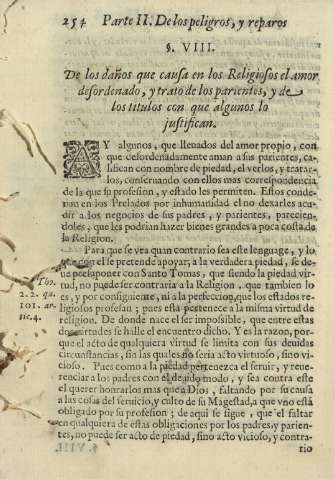 254 Parte II. De los peligros, y reparos
§. VIII.
De los daños que causa en los Religiosos el amor
desordenado, y trato de los parientes, y de
los titulos con que algunos lo
justifican.
AY algunos, que llenados del amor propio, con
que desordenadamente aman a sus parientes, ca-
lifican con nombre de piedad, el verlos, y tratar-
los, conseruando con ellos mas correspondencia
de la que su profesion, y estado les permiten. Estos conde-
nan en los Prelados por inhumanidad el no dexarles acu-
dir a los negocios de sus padres, y parientes, parecien-
doles, que les podrian hazer bienes grandes a poca costa de
la Religion.
Para que se vea quan contrario sea este lenguage, y lo
que con el se pretende apoyar, a la verdadera piedad, se de-
ue presuponer con Santo Tomas, que siendo la piedad vir-
tud, no puede ser contraria a la Religion, que tambien lo
es, y por consiguiente, ni a la perfeccion, que los estados re-
ligiosos profesan; pues esta pertenece a la misma virtud de
religion. De donde nace el ser imposible, que entre estas
dos virtudes se halle el encuentro dicho. Y es la razon, por-
que el acto de qualquiera virtud se limita con sus deuidas
circunstancias, sin las quales no seria acto virtuoso, sino vi-
cioso. Pues como a la piedad pertenezca el seruir, y reue-
renciar a los padres con el deuido modo, y sea contra este
el querer honrarlos mas que a Dios, faltando por su causa
a las cosas del seruicio, y culto de su Magestad, a que vno està
obligado por su profesion; de aqui se sigue, que el faltar
en qualquiera de estas obligaciones por los padres, y parien-
tes, no puede ser acto de piedad, sino acto vicioso, y contra-
rio
D. Tho.
2. 2. qu.
101. ar-
tic. 4.